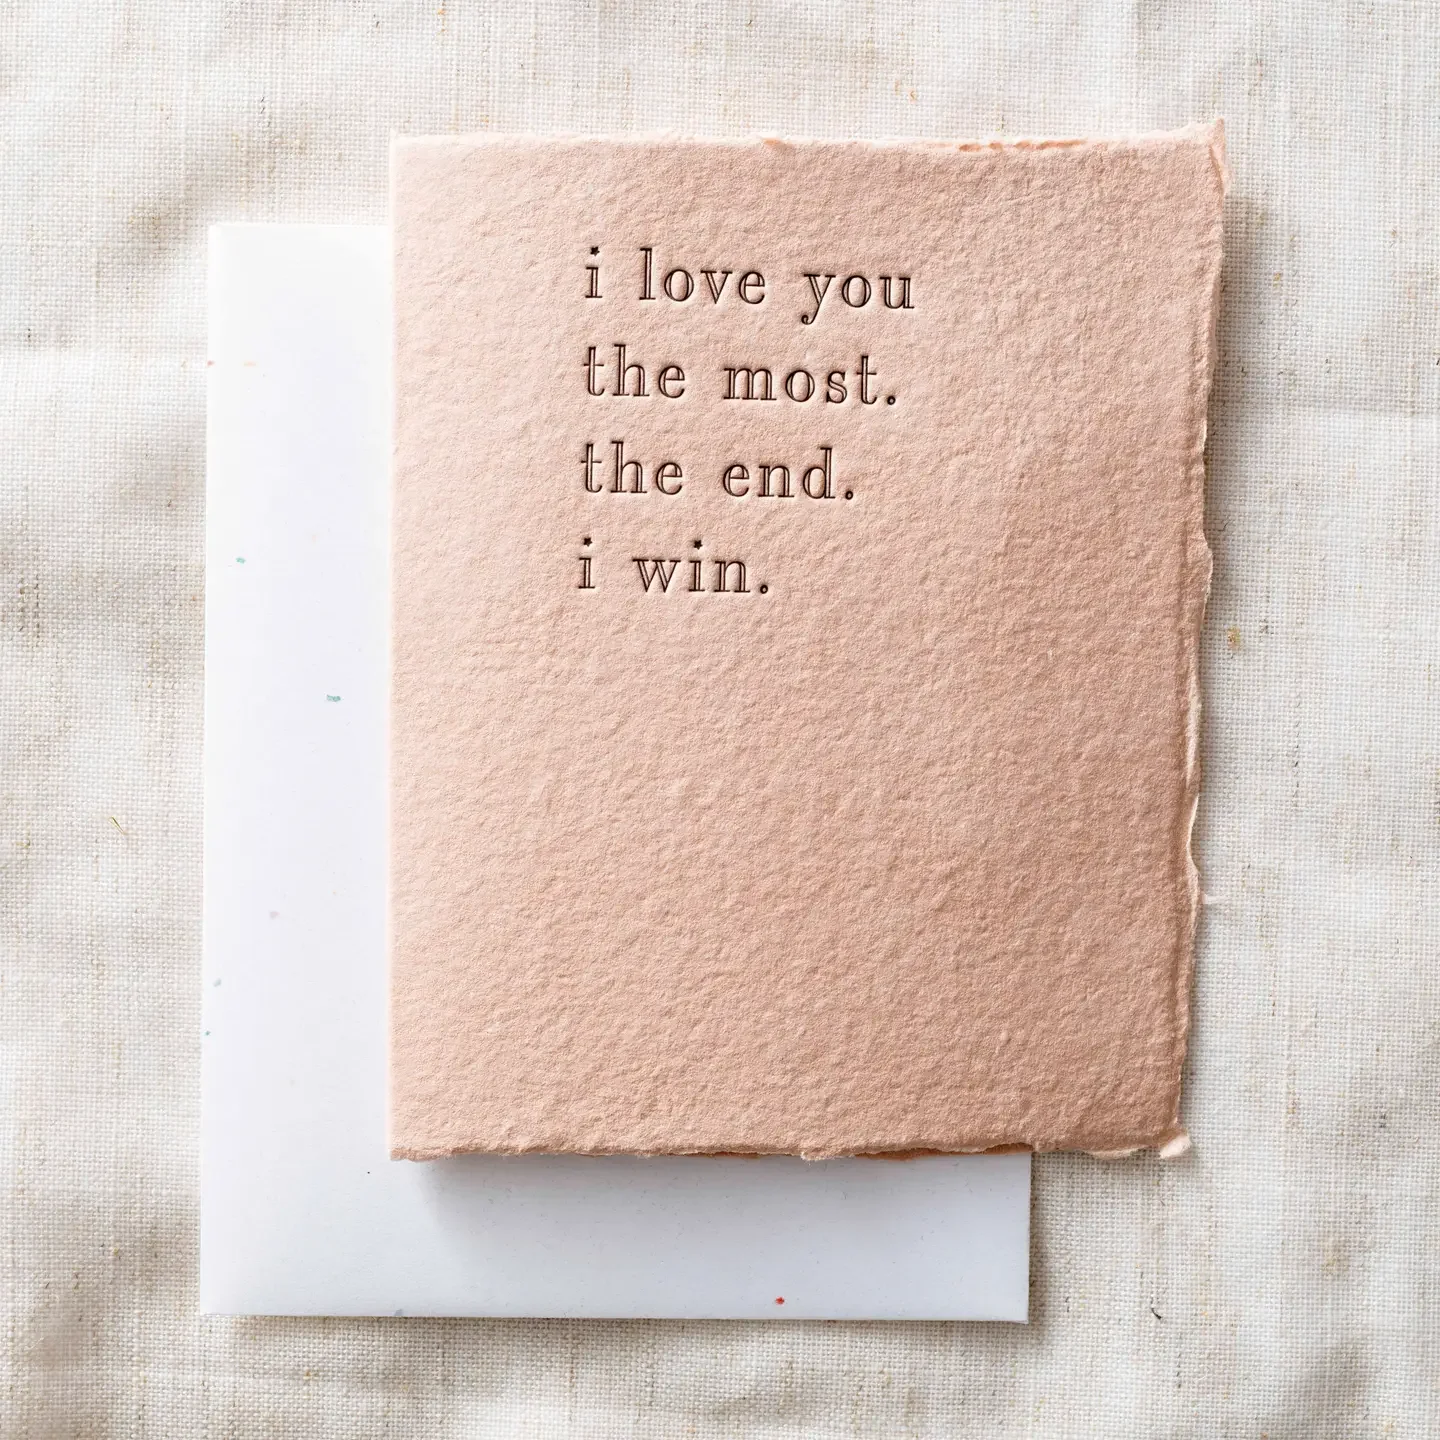 i love you
the most.
the end.
i win.